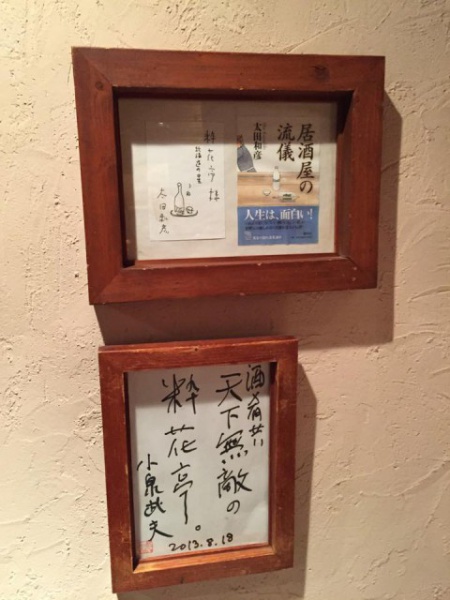 居酒屋の
流儀
太田和彦
人生は、面白い!
粋花亭 様
太田和彦
酒肴共に
天下無敵の
粋花亭。
小泉武夫
2013.8.18